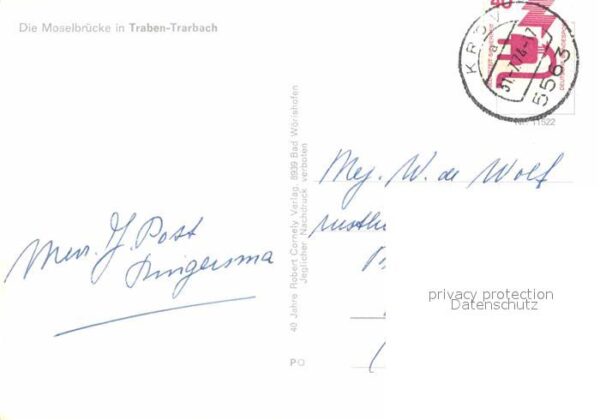 Die Moselbrücke in Traben-Trarbach
KRÖV
a
31.-7.74-17
5563
DEUTSCHE BUNDESPOST
Nr. 11522
40 Jahre Robert Cornely Verlag, 8939 Bad Wörishofen
Jeglicher Nachdruck verboten
PO
Mej. W. de Wolf
Mevr. J. Post
Dingersma
privacy protection
Datenschutz